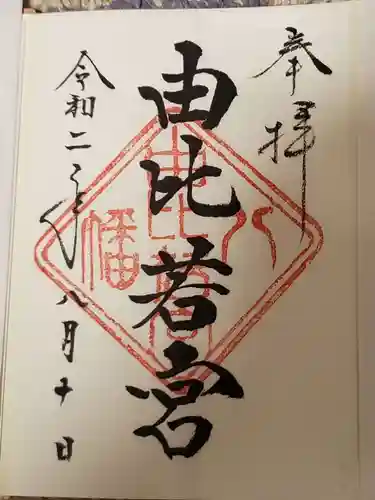 奉拝
由比若宮
令和二年八月十日
八幡
由比若宮